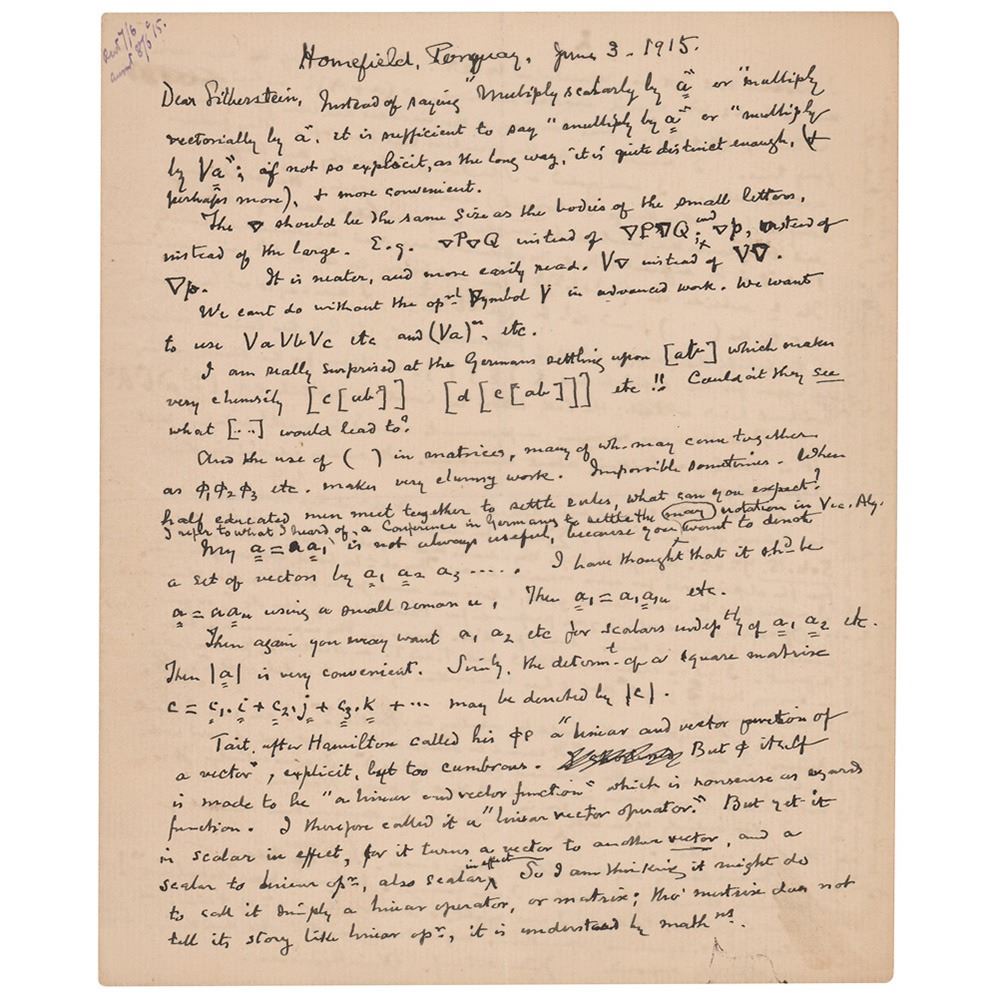 Homefield, Torquay, June 3 - 1915.
Dear Silberstein, Instead of saying "Multiply scalarly by a" or "multiply
vectorially by a", it is sufficient to say "multiply by a" or "multiply
by Va"; if not so explicit, as the long way, it is quite distinct enough, (+
perhaps more), + more convenient.
The ∇ should be the same size as the bodies of the small letters,
instead of the large. E.g. ∇P∇Q instead of ∇P∇Q; and ∇p, instead of
∇p. It is neater, and more easily read. V∇ instead of V∇.
We cant do without the opnl symbol V in advanced work. We want
to use VaVbVc etc and (Va)ⁿ, etc.
I am really surprised at the Germans settling upon [ab] which makes
very clumsily [c[ab]] [d[c[ab]]] etc!! Couldn't they see
what [..] would lead to?
And the use of ( ) in matrices, many of wh. may come together
as φ₁φ₂φ₃ etc. makes very clumsy work. Impossible sometimes. When
half educated men meet together to settle rules, what can you expect?
I refer to what I heard of, a Conference in Germany to settle the notation in Vec. Alg.
My a = aa₁ is not always useful, because you want to denote
a set of vectors by a₁ a₂ a₃ ..... I have thought that it shd be
a = aaᵤ using a small roman u, Then a₁ = a₁a₁ᵤ etc.
Then again you may want a₁ a₂ etc for scalars indepᵗˡʸ of a₁ a₂ etc.
Then |a| is very convenient. Simly, the determᵗ of a square matrix
c = c₁.i + c₂.j + c₃.k + ... may be denoted by |c|.
Tait, after Hamilton called his φρ "a linear and vector function of
a vector", explicit, but too cumbrous. But φ itself
is made to be "a linear and vector function" which is nonsense as regards
function. I therefore called it a "linear vector operator." But yet it
is scalar in effect, for it turns a vector to another vector, and a
scalar to linear opʳ, also scalar in effect. So I am thinking it might do
to call it simply a linear operator, or matrix; tho' matrix does not
tell its story like linear opʳ, it is understood by mathⁿˢ.